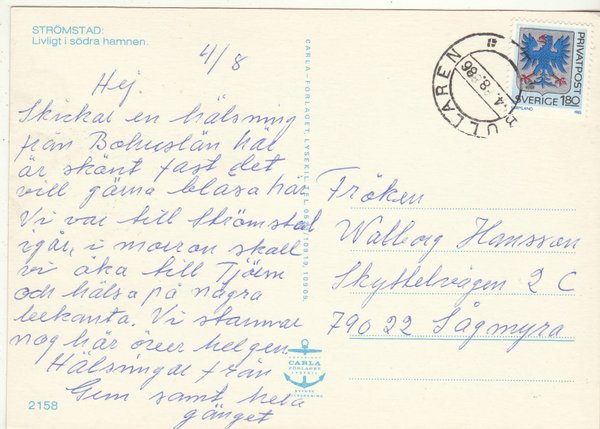 STRÖMSTAD:
Livligt i södra hamnen.
4/8
Hej
Skickar en hälsning
från Bohuslän här
är skönt fast det
vill gärna blåsa här
Vi var till Strömstad
igår, i morron skall
vi åka till Tjörn
och hälsa på några
bekanta. Vi stannar
nog här över helgen.
Hälsningar från
Gun samt hela
gänget
2158
CARLA-FÖRLAGET, LYSEKIL. TEL.
CARLA
FÖRLAGET
LYSEKIL
BULLAREN
PRIVATPOST
SVERIGE 180
Fröken
Walborg Hansson
Skyttelvägen 2 C
790 22 Sågmyra